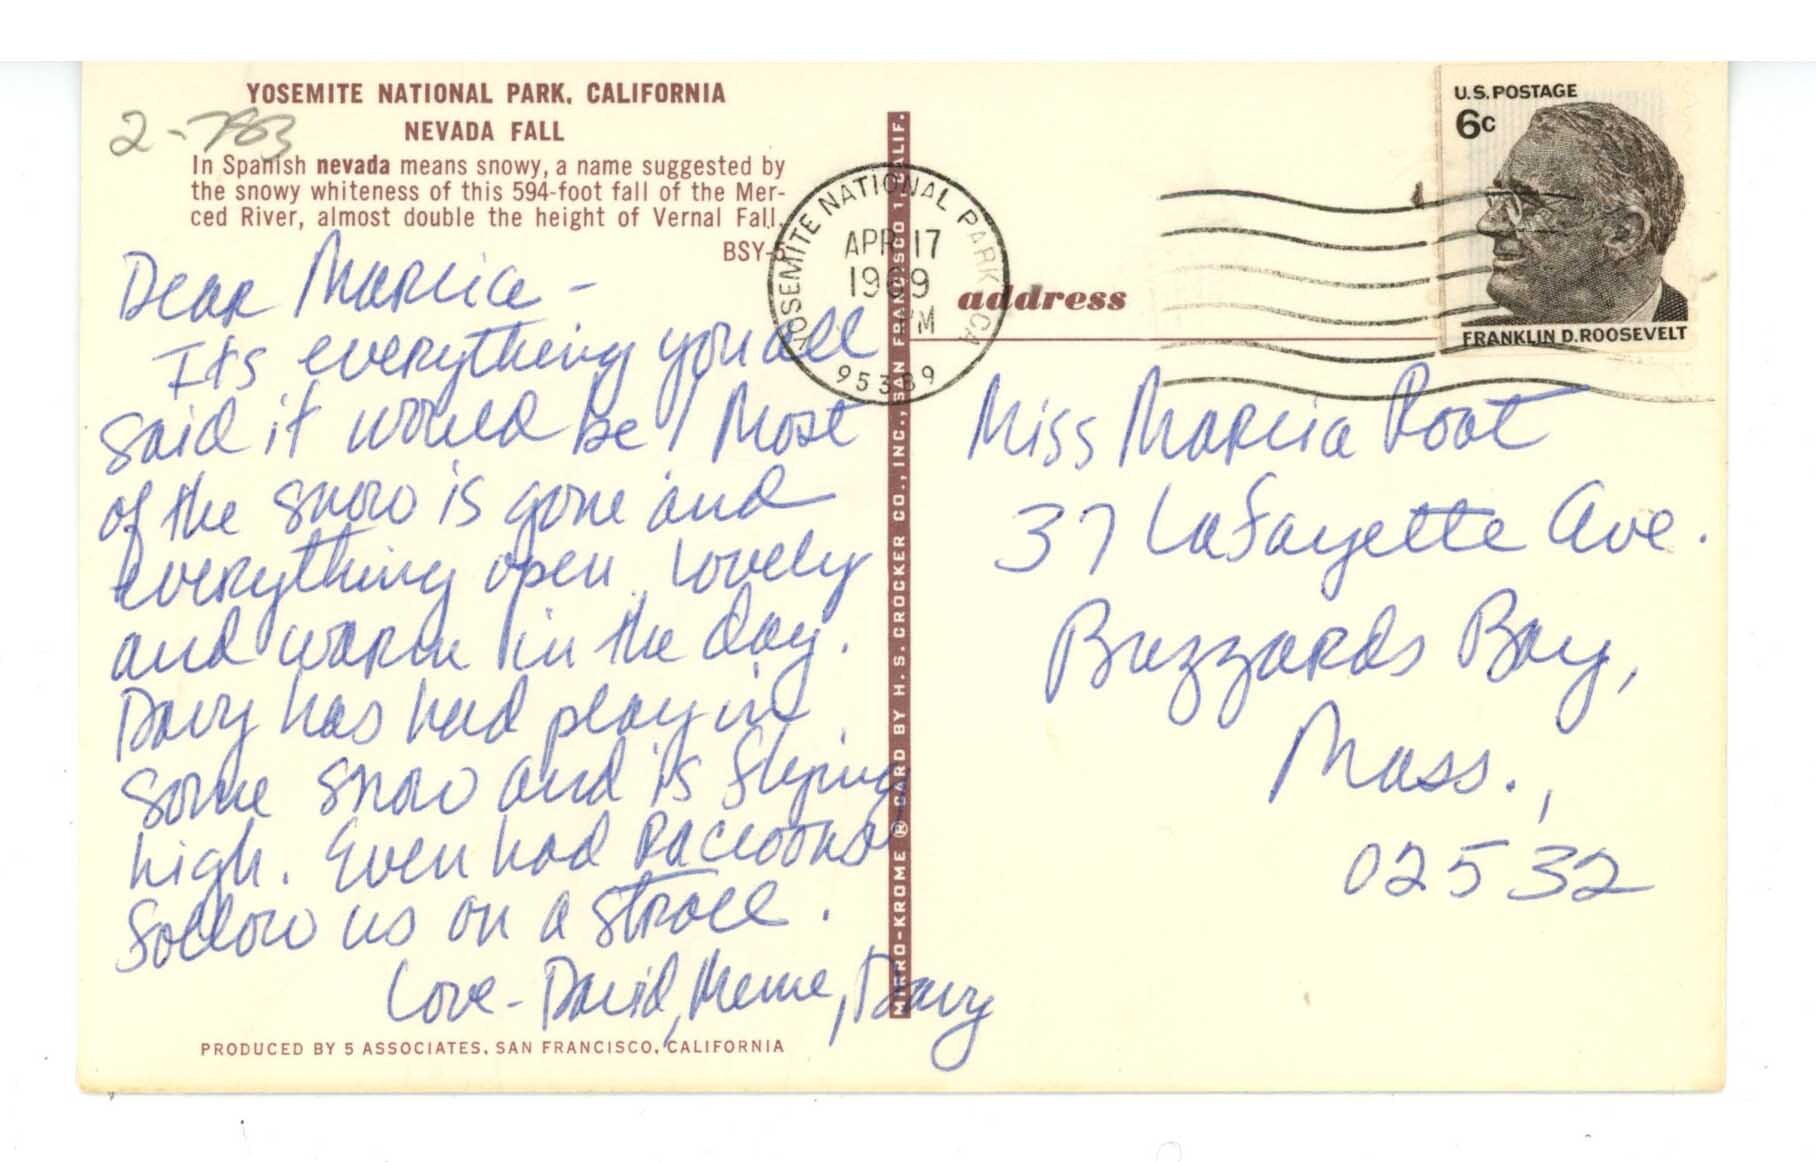 YOSEMITE NATIONAL PARK, CALIFORNIA
NEVADA FALL
2-783
In Spanish nevada means snowy, a name suggested by
the snowy whiteness of this 594-foot fall of the Mer-
ced River, almost double the height of Vernal Fall.
BSY-
Dear Marcia -
Its everything you all
said it would be! Most
of the snow is gone and
everything open. Lovely
and warm in the day.
Davy has had play in
some snow and is flying
high. Even had raccoons
follow us on a stroll.
Love - David, Meme, Davy
PRODUCED BY 5 ASSOCIATES, SAN FRANCISCO, CALIFORNIA
MIRRO-KROME ® CARD BY H. S. CROCKER CO., INC., SAN FRANCISCO 1, CALIF.
YOSEMITE NATIONAL PARK CA
APR 17
1969
PM
95389
address
U.S. POSTAGE
6c
FRANKLIN D. ROOSEVELT
Miss Marcia Root
37 Lafayette Ave.
Buzzards Bay,
Mass.,
02532